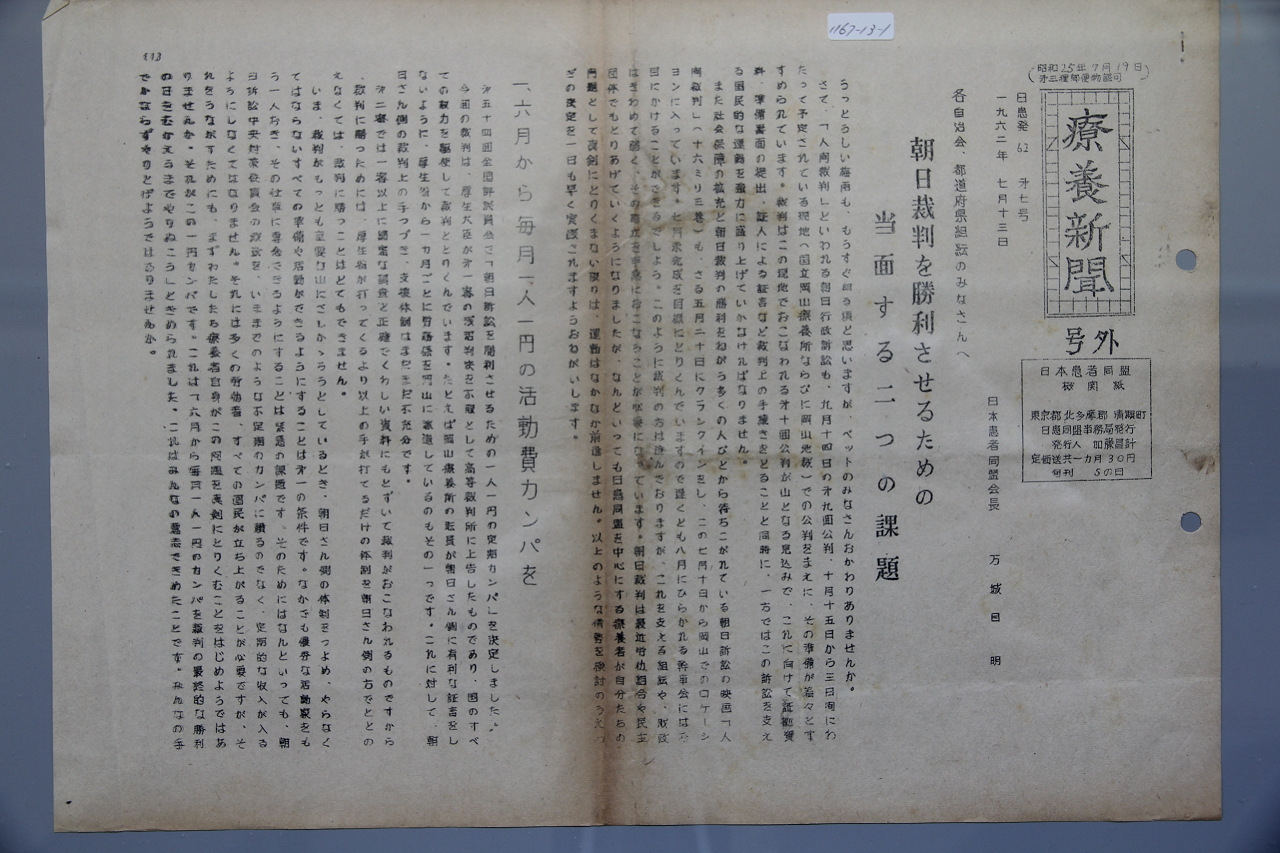 1167-13-1
113
(昭和25年7月19日
第三種郵便物認可)
療養新聞
号外
日本患者同盟
機関紙
東京都北多摩郡清瀬町
日患同盟事務局発行
発行人 加藤昌計
定価送共一カ月30円
旬刊 5の日
日患発62 才七号
一九六二年 七月十三日
各自治会、都道府県組織のみなさんへ
日本患者同盟会長 万城目 明
朝日裁判を勝利させるための
当面する二つの課題
うっとうしい梅雨も、もうすぐ明ける頃と思いますが、ベットのみなさんおかわりありませんか。
さて、「人間裁判」といわれる朝日行政訴訟も、九月十四日の才九回公判、十月十五日から三日間にわ
たって予定されている現地(国立岡山療養所ならびに岡山地裁)での公判をまえに、その準備が着々とす
すめられています。裁判はこの現地でおこなわれる才十回公判が山となる見込みで、これに向けて証拠資
料、準備書面の提出、証人による証言など裁判上の手続きをとることと同時に、一方ではこの訴訟を支え
る国民的な運動を強力に盛り上げていかなければなりません。
また社会保障の拡充と朝日裁判の勝利をねがう多くの人びとから待ちこがれている朝日訴訟の映画「人
間裁判」(十六ミリ三巻)も、さる五月二十日にクランクインをし、この七月十日から岡山でのロケーシ
ョンに入っています。七月末完成を目標にとりくんでいますので遅くとも八月にひらかれる幹事会にはみ
回にかけることができるでしょう。このように裁判の方は進んでおりますが、これを支える組織や、財政
はきわめて弱く、その強化を早急におこなうことが必要になっています。朝日裁判は最近労仂組合や民主
団体でもとりあげていくようになりましたが、なんといっても日患同盟を中心にする療養者が自分たちの
問題として真剣にとりくまない限りは、運動はなかなか前進しません。以上のような情勢を検討のうえつ
ぎの決定を一日も早く実践されますようおねがいします。
一、六月から毎月一人一円の活動費カンパを
才五十四回全国評議員会で「朝日訴訟を勝利させるための一人一円の定期カンパ」を決定しました。
今回の裁判は、厚生大臣が才一審の浅沼判決を不服として高等裁判所に上告したものであり、国のすべ
ての权力を駆使して裁判ととりくんでいます。たとえば岡山療養所の職員が朝日さん側に有利な証言をし
ないように、厚生省から一カ月ごとに労務係を岡山に派遣しているのもその一つです。これに対して、朝
日さん側の裁判上の手つづき、支援体制はまだまだ不充分です。
才二審では一審以上に綿密な調査と正確でくわしい資料にもとずいて裁判がおこなわれるものですから
裁判に勝つためには、厚生省が打ってくるより以上の手が打てるだけの体制を朝日さん側の方でととの
えなくては、裁判に勝つことはとてもできません。
いま、裁判がもっとも重要な山にさしかゝろうとしているとき、朝日さん側の体制をつよめ、やらなく
てはならないすべての準備や活動ができるようにすることは才一の条件です。なかでも優秀な活動家をも
う一人ふやし、その仕事に専念できるようにすることは緊急の課題です。そのためにはなんといっても、朝
日訴訟中央対策委員会の財政を、いままでのような不定期のカンパに頼るのでなく、定期的な収入が入る
ようにしなくてはなりません。それには多くの労働者、すべての国民が立ち上がることが必要ですが、そ
れをうながすためにも、まずわたしたち療養者自身がこの問題を真剣にとりくむことをはじめようではあ
りませんか。それがこの一円カンパです。これは「六月から毎月一人一円のカンパを裁判の最終的な勝利
の日をむかえるまでやりぬこう」ときめられました。これはみんなの意志できめたことです。みんなの手
でかならずやりとげようではありませんか。